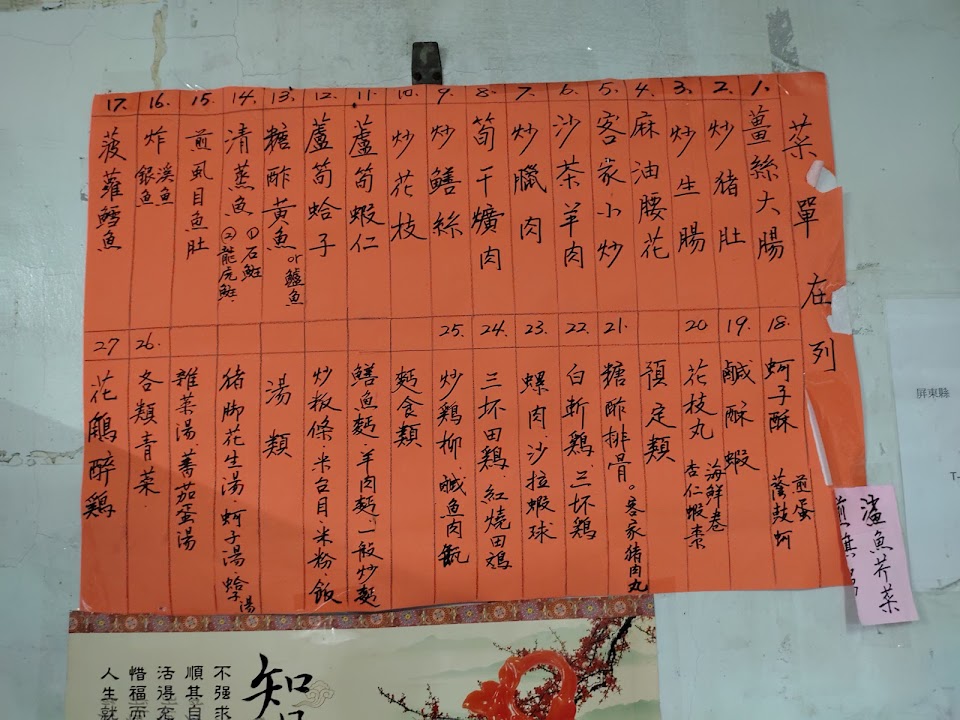 菜單在列
1. 薑絲大腸
2. 炒猪肚
3. 炒生腸
4. 麻油腰花
5. 客家小炒
6. 沙茶羊肉
7. 炒臘肉
8. 荀干爌肉
9. 炒鱔絲
10. 炒花枝
11. 蘆筍蝦仁
12. 蘆筍蛤子
13. 糖酢黃魚 or 鱸魚
14. 清蒸魚 ①石魟 ②龍虎魟
15. 煎虱目魚肚
16. 炸溪魚 銀魚
17. 菠蘿鱈魚
18. 蚵子酥 煎蛋 蔭鼓蚵
19. 鹹酥蝦
20. 花枝丸 海鮮卷 杏仁蝦棗
預定類
21. 糖酢排骨。客家猪肉丸
22. 白斬鷄、三坏鷄
23. 螺肉、沙拉蝦球
24. 三坏田鷄、紅燒田鷄
25. 炒鷄柳、鹹魚肉
麵食類
鱔魚麵、羊肉麵、一般炒麵
炒板條、米台目、米粉、飯
湯類
猪脚花生湯、蚵子湯、蛤子湯
雜菜湯、蕃茄蛋湯
26. 各類青菜.
27 花鵰醉鷄
鯊魚芥菜
屏東縣
知
不强求
順其自
活得充
惜福而
人生就